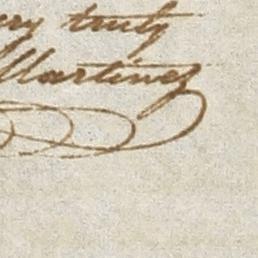 ery truly
Martinez